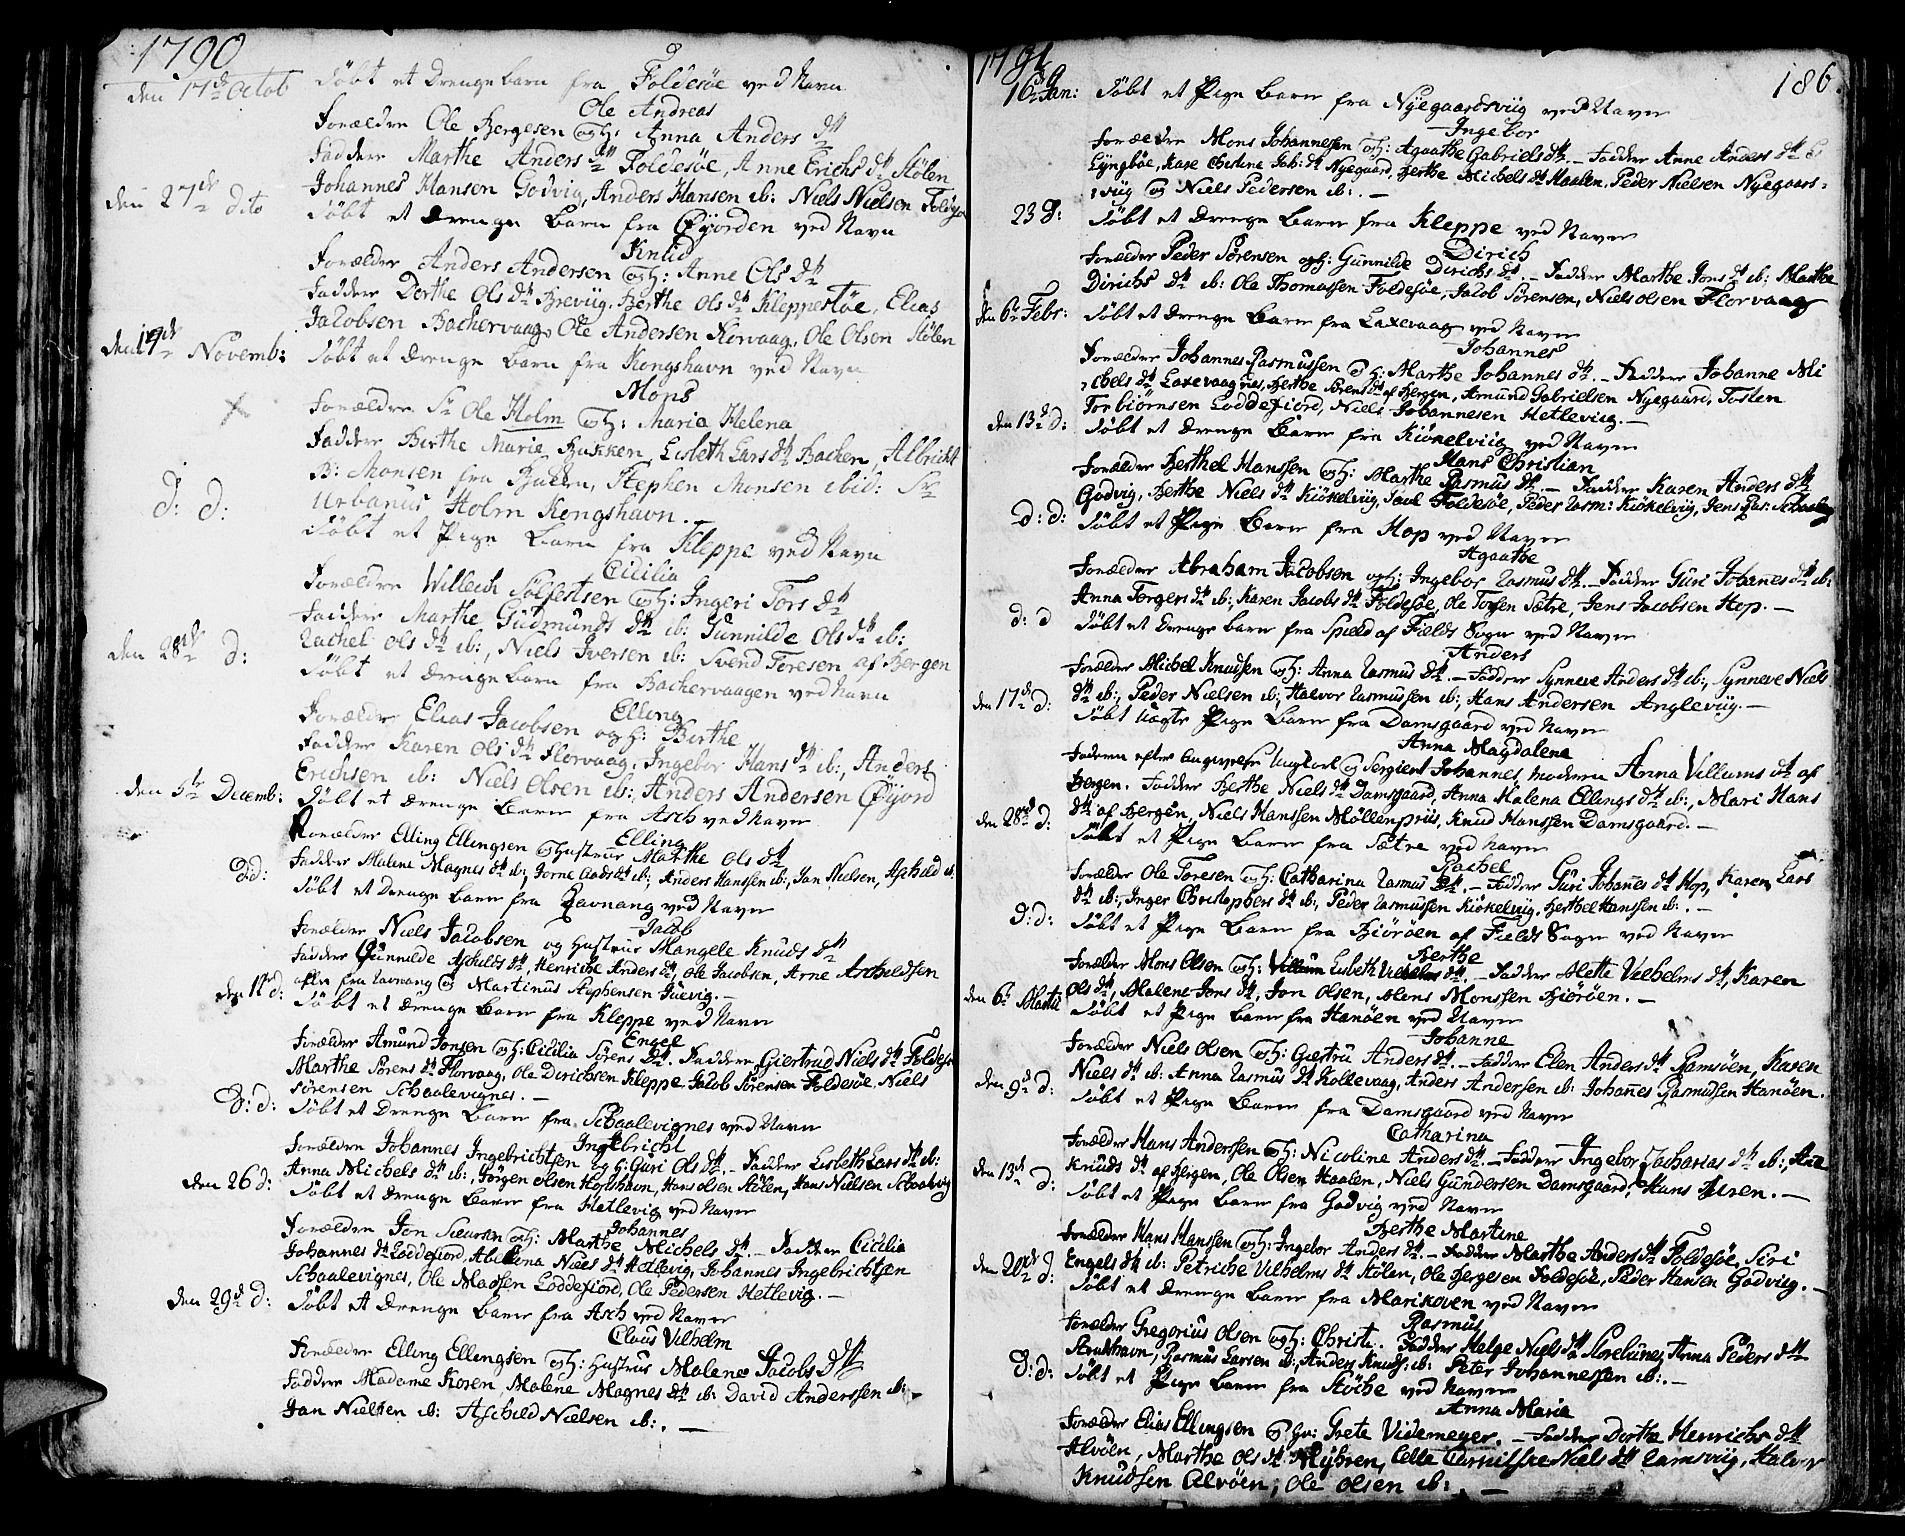 1790
den 17de Octob døbt et Drenge barn fra Foldesøe ved Navn
Ole Andreas
Forældre Ole Bergesen og H: Anna Anders dtr
Faddere Marthe Anders dtr Foldesøe, Anne Erichs dtr Stølen
Johannes Hansen Godvig, Anders Hansen ib: Niels Nielsen Foldesøe
den 27de dito døbt et Drenge Barn fra Øyjorden ved Navn
Knud
Forældre Anders Andersen og H: Anne Ols dtr
Faddere Dorthe Ols dtr Breviig, Berthe Ols dtr Kleppestøe, Elias
Jacobsen Bachervaag, Ole Andersen Florvaag, Ole Olsen Stølen
den 19de Novemb: døbt et Drenge Barn fra Kongshavn ved Navn
Mons
Forældre Sr Ole Holm og H: Maria Helena
Faddere Birthe Marie Bukken, Lisbeth Lars dtr Backen, Albricht
B: Monsen fra Bukken, Stephen Monsen ibid: Sr
Urbanus Holm Kongshavn.
d: d: døbt et Pige Barn fra Kleppe ved Navn
Cicilia
Forældre Willech Sølfestsen og H: Ingeri Tors dtr
Faddere Marthe Gudmunds dtr ib: Gunnilde Ols dtr ib:
Rachel Ols dtr ib:, Niels Iversen ib: Svend Toresen af Bergen
den 28de d: døbt et Drenge barn fra Bachervaagen ved Navn
Elling
Forældre Elias Jacobsen og H: Birthe
Faddere Karen Ols dtr Florvaag, Ingebor Hans dtr ib:, Anders
Erichsen ib: Niels Olsen ib:, Anders Andersen Øyjord
den 5te Decemb: døbt et Drenge Barn fra Asch ved Navn
Elling
Forældre Elling Ellingsen og Hustrue Marthe Ols dtr
Faddere Malene Magnes dtr ib:, Anders Hanssen ib:, Jan Nielsen, Aschild ib
d: d: døbt et Drenge Barn fra Ravnang ved Navn
Jacob
Forældre Niels Jacobsen og Hustrue Mangele Knuds dtr
Faddere Gunnilde Aschilds dtr, Henriche Anders dtr, Ole Jacobsen, Arne Ascheldsen
alle fra Ravnang og Martinus Stephensen Juevig. —
den 12te d: døbt et Drenge Barn fra Kleppe ved Navn
Engel
Forældre Amund Jonsen og H: Cicilia Sørens dtr. Faddere Giertrud Niels dtr Foldesøe
Marthe Sørens dtr Florvaag, Ole Dirichsen Kleppe, Jacob Sørensen Foldesøe, Niels
Sørensen Schaalevignes. —
d: d: døbt et Drenge Barn fra Schaalevignes ved Navn
Ingebricht
Forældre Johannes Ingebrichtsen og H: Guri Ols dtr. — Faddere Lisbeth Lars dtr ib:
Anna Michels dtr ib:, Jørgen Olsen Hopshavn, Hans Olsen Stølen, Hans Nielsen Schaalevig
den 26 d: døbt et Drenge Barn fra Hetlevig ved Navn
Johannes
Forældre Jon Siversen og H: Marthe Michels dtr. — Faddere Cicilia
Johannes dtr Loddefiord, Abelena Niels dtr Hetlevig, Johannes Ingebrichtsen
Schaalevignes, Ole Madsen Loddefiord, Ole Pedersen Hetlevig. —
den 29de d: døbt et Drenge Barn fra Asch ved Navn
Claus Vilhelm
Forældre Elling Ellingsen og H: Hustrue Malene Jacobs dtr
Faddere Madame Koren, Malene Magnes dtr ib: David Anderssen ib:
Jan Nielsen ib: Aschild Nielsen ib:. —
1791
186.
16de Jan: døbt et Pige Barn fra Nyegaardsviig ved Navn
Ingebor
Forældre Mons Johannesen og H: Agaathe Gabriels dtr. — Faddere Anne Anders dtr
Lyngbøe, Kare Chestine Jab: dtr Nyegaard, Berthe Michels dtr Haalen, Peder Nielsen Nyegaars-
viig og Niels Pedersen ib:. —
23 d: døbt et Drenge Barn fra Kleppe ved Navn
Dirich
Forældre Peder Sørensen og H: Gunnilde Dirichs dtr. — Faddere Marthe Jons dtr ib: Marthe
Dirichs dtr ib: Ole Thomassen Foldesøe, Jacob Sørensen, Niels Olsen Florvaag
den 6te Febr: døbt et Drenge Barn fra Laxevaag ved Navn
Johannes
Forældre Johannes Rasmussen og H: Marthe Johannes dtr. — Faddere Johanne Mi
chels dtr Laxevaagnes, Berthe Brends dtr af Bergen, Amund Gabrielsen Nyegaard, Tosten
Torbiørnsen Loddefiord, Niels Johannesen Hetleviig. —
den 13de d: døbt et Drenge Barn fra Kiøkelviig ved Navn
Hans Christian
Forældre Berthel Hanssen og H: Marthe Rasmus dtr. — Faddere Karen Anders dtr
Godvig, Berthe Niels dtr Kiøkelviig, Foldesøe, Peder Rasm: Kiøkelviig, Jens Ras: Schaalevig
d: d: døbt et Pige Barn fra Hop ved Navn
Agaathe
Forældre Abraham Jacobsen og H: Ingebor Rasmus dtr. — Faddere Guri Johanes dtr ib:
Anna Torgers dtr ib; Karen Jacobs dtr Foldesøe, Ole Torsen Sætre, Jens Jacobsen Hop. —
d: d døbt et Drenge barn fra Spield af Fields Sogn ved Navn
Anders
Forældre Michel Knudsen og H: Anna Rasmus dtr. — Faddere Synneve Anders dtr ib:, Synneve Niels
dtr ib:, Peder Nielsen ib:, Halvor Rasmussen ib:, Hans Andersen Angleviig. —
den 17de d: døbt uægte Pige Barn fra Damsgaard ved Navn
Anna Magdalena
Faderen efter Angivelse Ungkarl og Sergient Johannes, Moderen Anna Villums dtr af
Bergen. Faddere Berthe Niels dtr Damsgaard, Anna Malena Ellings dtr ib:, Mari Hans
dtr af Bergen, Niels Hanssen Møllenpriis, Knud Hanssen Damsgaard. —
den 28de d: døbt et Pige Barn fra Sætre ved Navn
Rachel
Forældre Ole Toresen og H: Catharina Rasmus dtr. — Faddere Guri Johannes dtr Hop, Karen Lars
dtr ib:, Inger Christophers dtr ib:, Peder Rasmussen Kiøkelviig, Berthel Hanssen ib:. —
d: d: døbt et Pige Barn fra Biørøen af Fields Sogn ved Navn
Berthe
Forældre Mons Olsen og H: Lisbeth Vilhelms dtr. — Faddere Mette Vilhelms dtr, Karen
Ols dtr, Malene Jons dtr, Jon Olsen, Mons Monssen Biørøen. —
den 6te Martii døbt et Pige Barn fra Hanøen ved Navn
Johanne
Forældre Niels Olsen og H: Giestru Anders dtr. — Faddere Elen Anders dtr Ramsøen, Karen
Niels dtr ib: Anna Rasmus dtr Kollevaag, Anders Andersen ib: Johanes Rasmussen Hanøen.
den 9de d: døbt et Pige Barn fra Damsgaard ved Navn
Catharina
Forældre Hans Anderssen og H: Nicoline Anders dtr. — Faddere Ingebor Zacharias dtr ib:,
Knuds dtr af Bergen, Ole Olsen Haalen, Niels Gundersen Damsgaard, Hans Juren. —
den 13de d: døbt et Pige Barn fra Godvig ved Navn
Berthe Martine
Forældre Hans Hanssen og H: Ingebor Anders dtr. — Faddere Marthe Anders dtr Foldesøe, Siri
Engels dtr ib: Petriche Vilhelms dtr Stølen, Ole Bergesen Foldesøe, Peder Hansen Godviig. —
den 20de d: døbt et Drenge Barn fra Marikoven ved Navn
Rasmus
Forældre Gregorius Olsen og H: Christi. Faddere Helge Niels dtr Storeline, Anna Peders dtr
Strudshavn, Rasmus Larsen ib:, Anders Knuds: ib: Peter Johannessen ib:. —
d: d: døbt et Pige Barn fra Støche ved Navn
Anna Maria
Forældre Elias Ellingsen og H: Grete Videmeyer. — Faddere Dorthe Henrichs dtr
Alvøen, Marthe Ols dtr Myhren, Niels dtr Ramsviig, Halvor
Knudsen Alvøen, Ole Olsen ib:. —